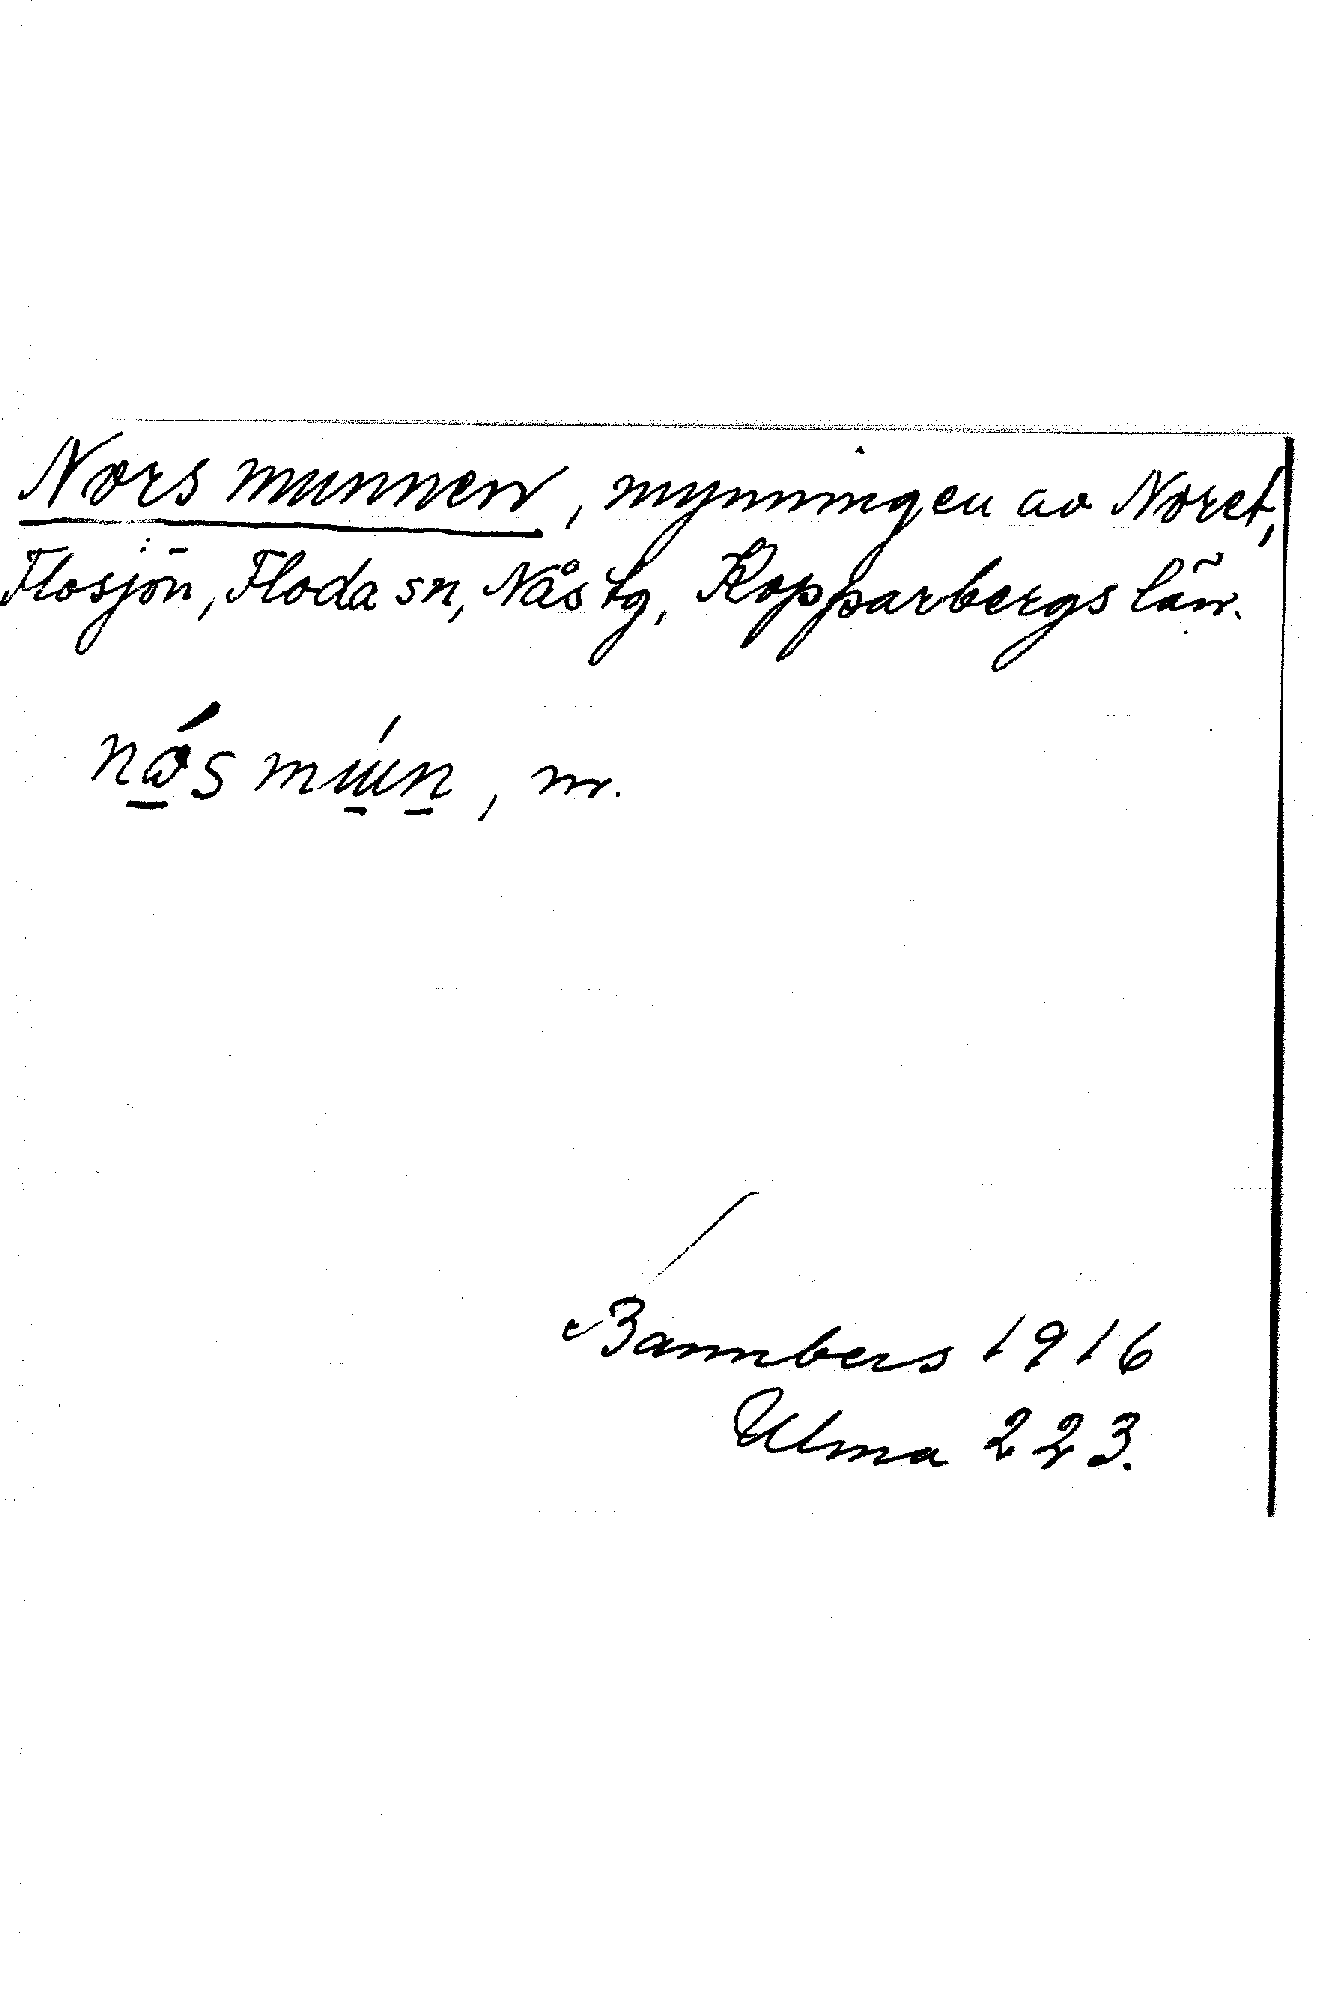 Nors munnen, mynningen av Noret,
Flosjön, Floda sn, Nås tg, Kopparbergs län.
m.
Bannbers 1916
Ulma 223.